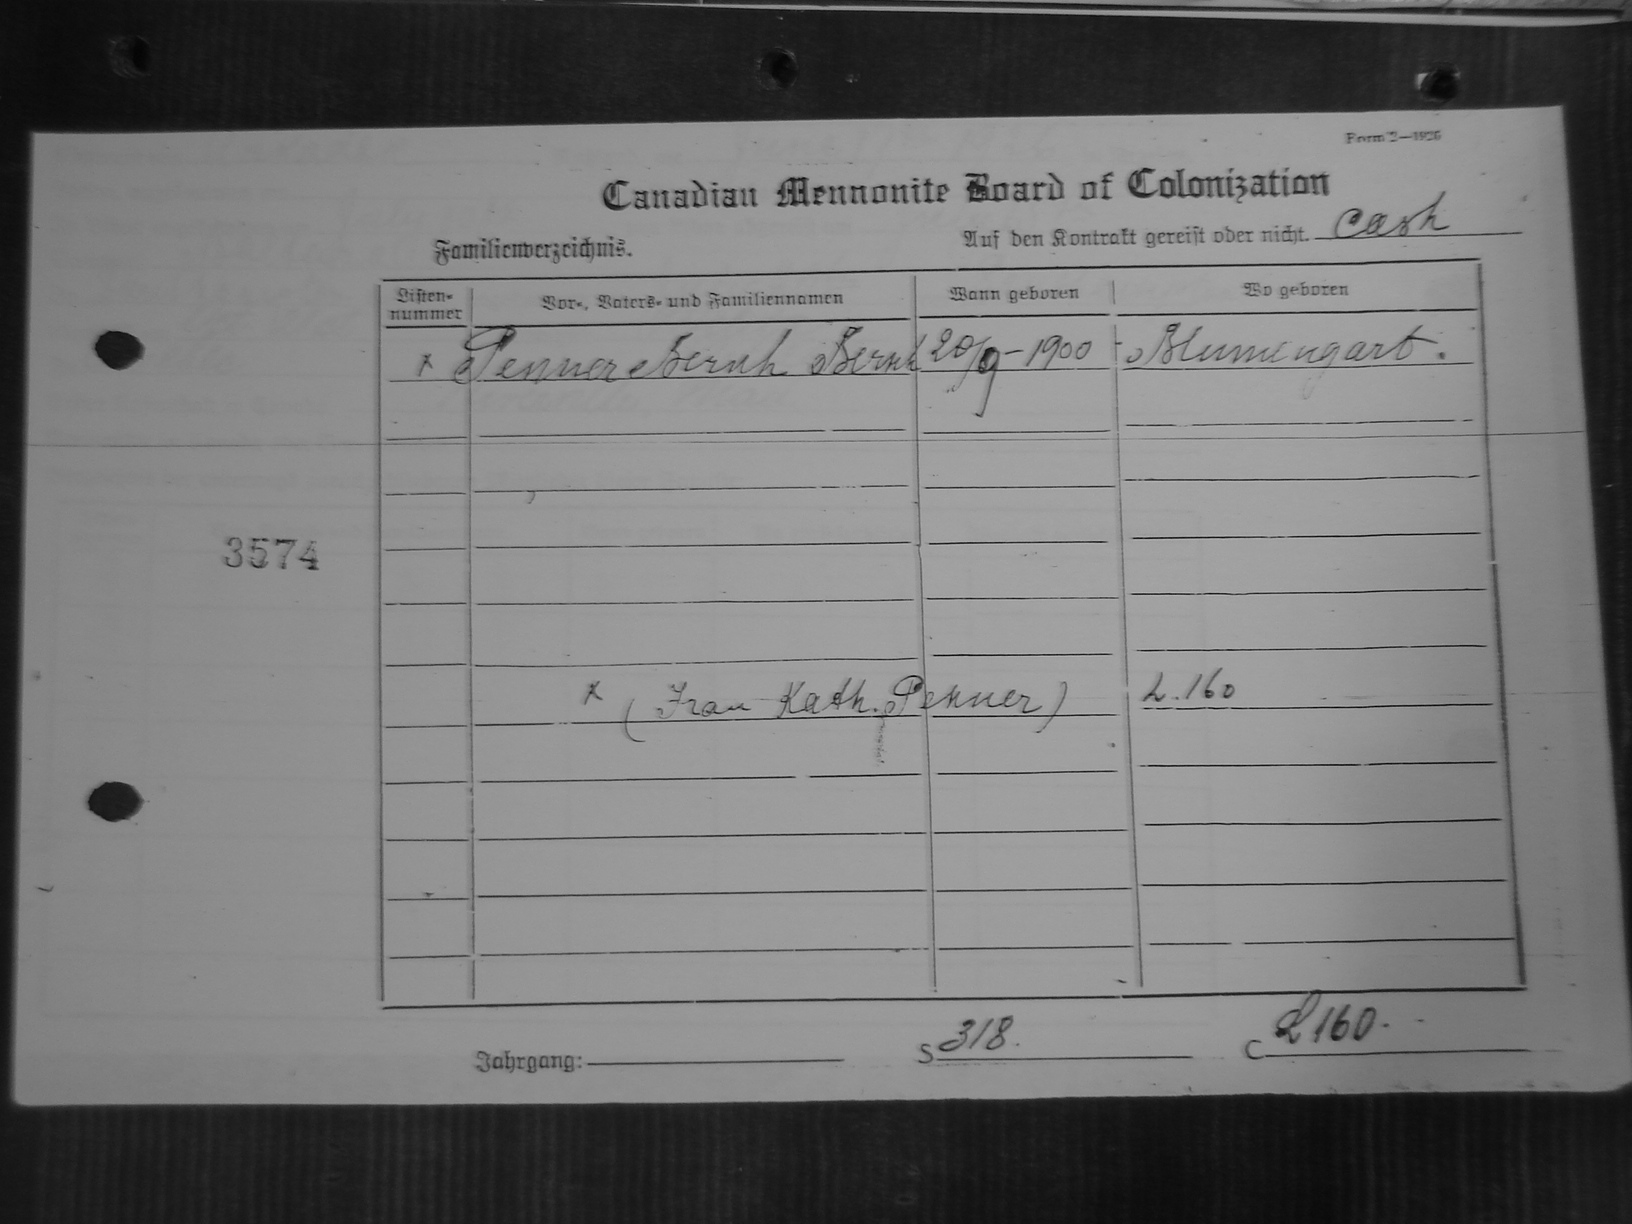 Form 2—1926
Canadian Mennonite Board of Colonization
Familienverzeichnis.
Auf den Kontrakt gereist oder nicht. Cash
Listen-
nummer
Vor-, Vaters- und Familiennamen
Wann geboren
Wo geboren
x Penner Bernh Bernh 20/9-1900 Blumengart.
3574
x (Frau Kath. Penner) L.160
Jahrgang:
S 318.
C L160.